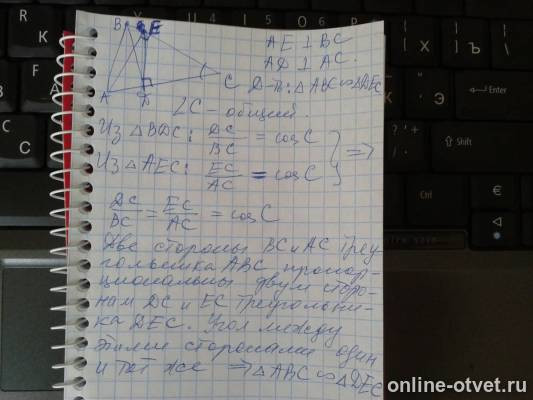 B E
AE ⊥ BC
AD ⊥ AC.
C
Д-ть: △ABC ∽ △DEC
A D
∠C - общий.
Из △BDC: DC/BC = cos C
⇒
Из △AEC: EC/AC = cos C
DC/BC = EC/AC = cos C
Две стороны BC и AC треу-
гольника ABC пропор-
циональны двум сторо-
нам DC и EC треугольни-
ка DEC. Угол между
этими сторонами один
и тот же ⇒ △ABC ∽ △DEC
Ctrl
online-otvet.ru